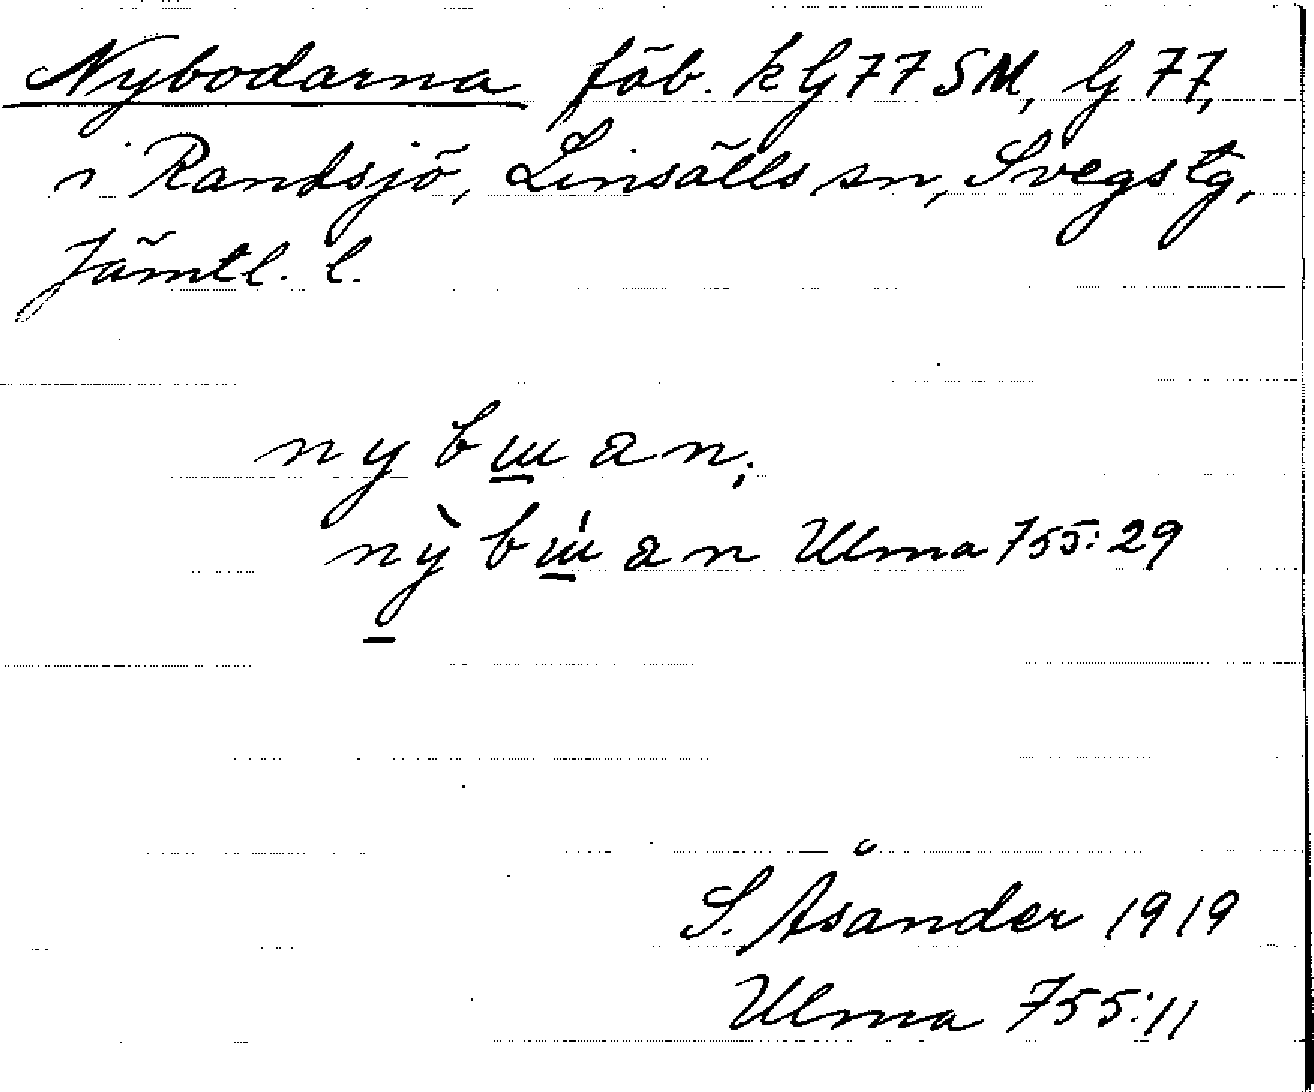 Nybodarna fäb. kG77SM, G77,
i Randsjö, Linsälls sn, Svegs tg,
Jämtl. l.
nybɯ̲an;
nỳ̲bɯ̲́an Ulma 755:29
S. Åsander 1919
Ulma 755:11